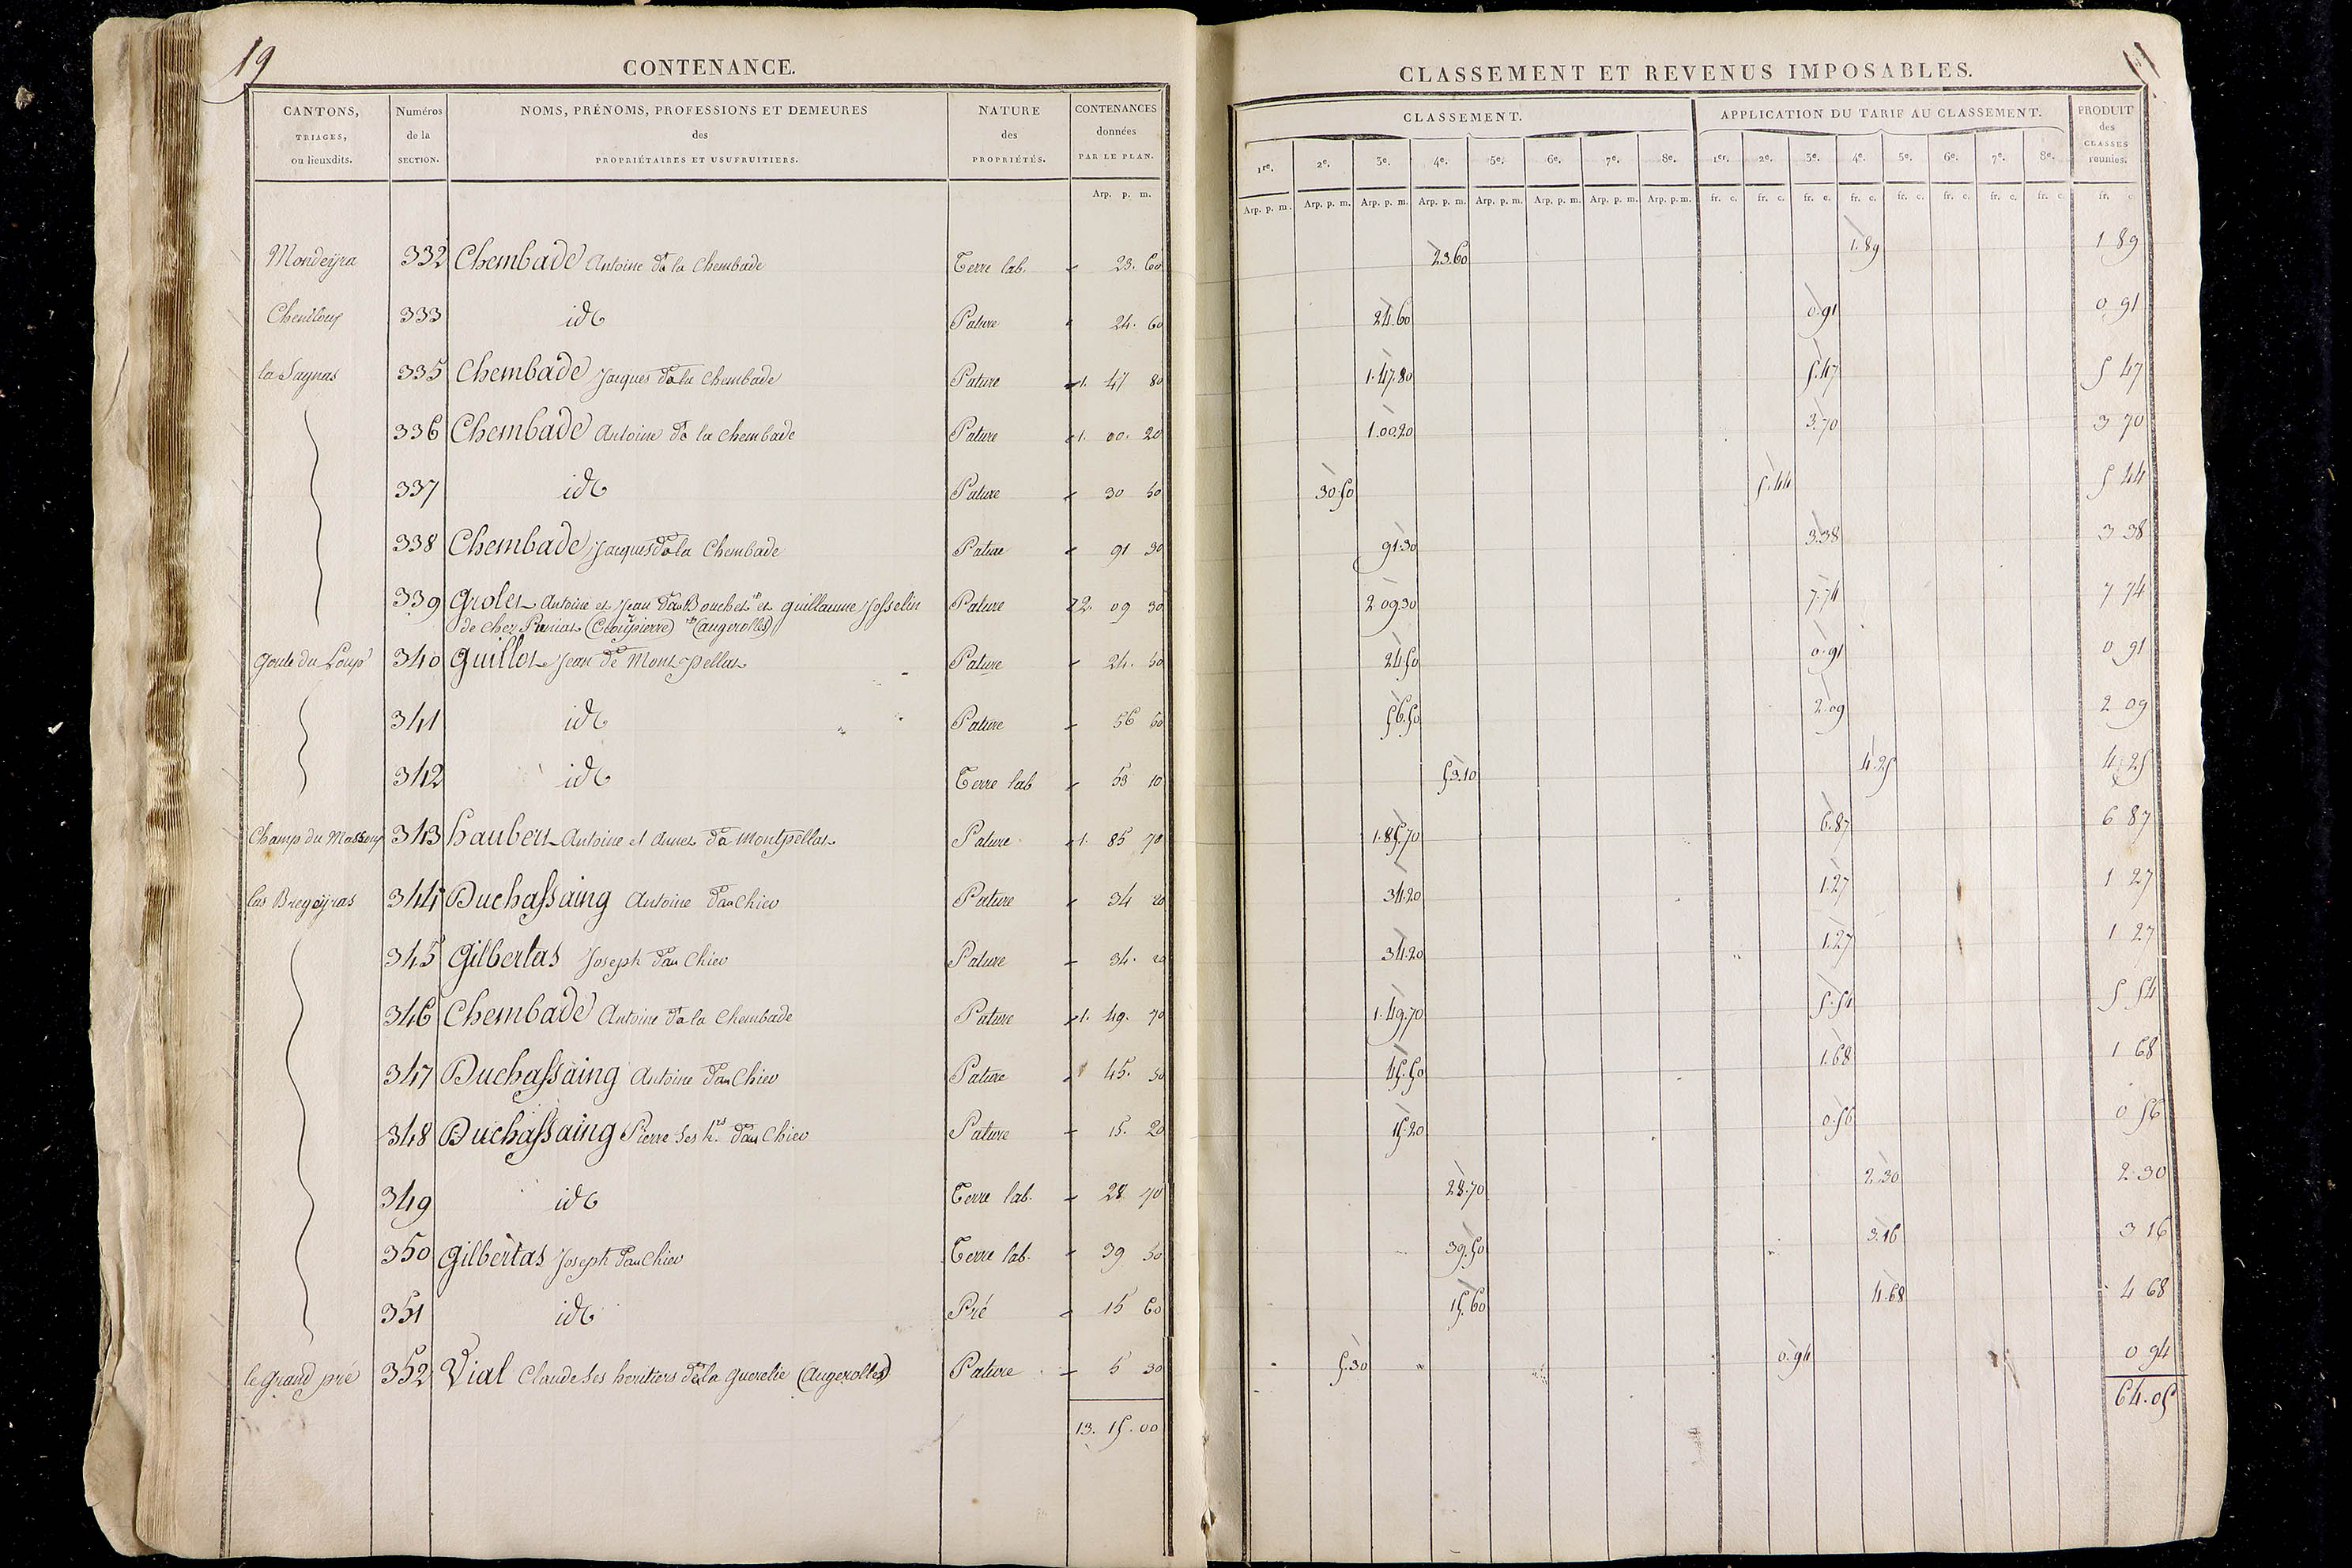 19
CONTENANCE.
CANTONS, TRIAGES, ou lieuxdits.
Numéros de la SECTION.
NOMS, PRÉNOMS, PROFESSIONS ET DEMEURES des PROPRIÉTAIRES ET USUFRUITIERS.
NATURE des PROPRIÉTÉS.
CONTENANCES données PAR LE PLAN.
Arp. p. m.
Mondeÿra 332 Chembade Antoine de la Chembade Terre lab. 23. 60
333 id Pature 24. 60
la Sagnas 335 Chembade Jacques de la Chembade Pature 1. 47 80
336 Chembade Antoine de la Chembade Pature 1. 00. 20
337 id Pature 30 50
338 Chembade Jacques de la Chembade Pature 91 30
339 Groles Antoine et Jean du Bouchet et guillaume Josselin Pature 2. 09 30
de chez (augerolles)
Goute du Loup 340 Guillot Jean de Montpellat Pature 24. 50
341 id Pature 56 50
342 id Terre lab 53 10
Champ du 343 haubert Antoine et Annet de Montpellat Pature 1. 85 70
las Bregeÿras 344 Duchassaing Antoine dau Chier Pature 34 20
345 Gilbertas Joseph dau Chier Pature 34. 20
346 Chembade Antoine de la Chembade Pature 1. 49. 70
347 Duchassaing Antoine dau Chier Pature 45. 50
348 Duchassaing Pierre ses h.rs dau Chier Pature 15. 20
349 id Terre lab. 28 70
350 Gilbertas Joseph dau Chier Terre lab. 39 50
351 id Pré 15 60
le grand pré 352 Vial Claude ses heritiers de la Guerelie (Augerolles) Pature 5 30
13. 15. 00
11
CLASSEMENT ET REVENUS IMPOSABLES.
CLASSEMENT.
APPLICATION DU TARIF AU CLASSEMENT.
PRODUIT des CLASSES réunies.
1re. 2e. 3e. 4e. 5e. 6e. 7e. 8e. 1er. 2e. 3e. 4e. 5e. 6e. 7e. 8e.
Arp. p. m. Arp. p. m. Arp. p. m. Arp. p. m. Arp. p. m. Arp. p. m. Arp. p. m. Arp. p. m. fr. c. fr. c. fr. c. fr. c. fr. c. fr. c. fr. c. fr. c. fr. c
23.60 1.89 1 89
24.60 0.91 0 91
1.47.80 5.47 5 47
1.00.20 3.70 3 70
30.50 5.44 5 44
91.30 3.38 3 38
2.09.30 7.74 7 74
24.50 0.91 0 91
56.50 2.09 2 09
53.10 4.25 4 25
1.85.70 6.87 6 87
34.20 1.27 1 27
34.20 1.27 1 27
1.49.70 5.54 5 54
45.50 1.68 1 68
15.20 0.56 0 56
28.70 2.30 2 30
39.50 3.16 3 16
15.60 4.68 4 68
5.30 0.94 0 94
64.05